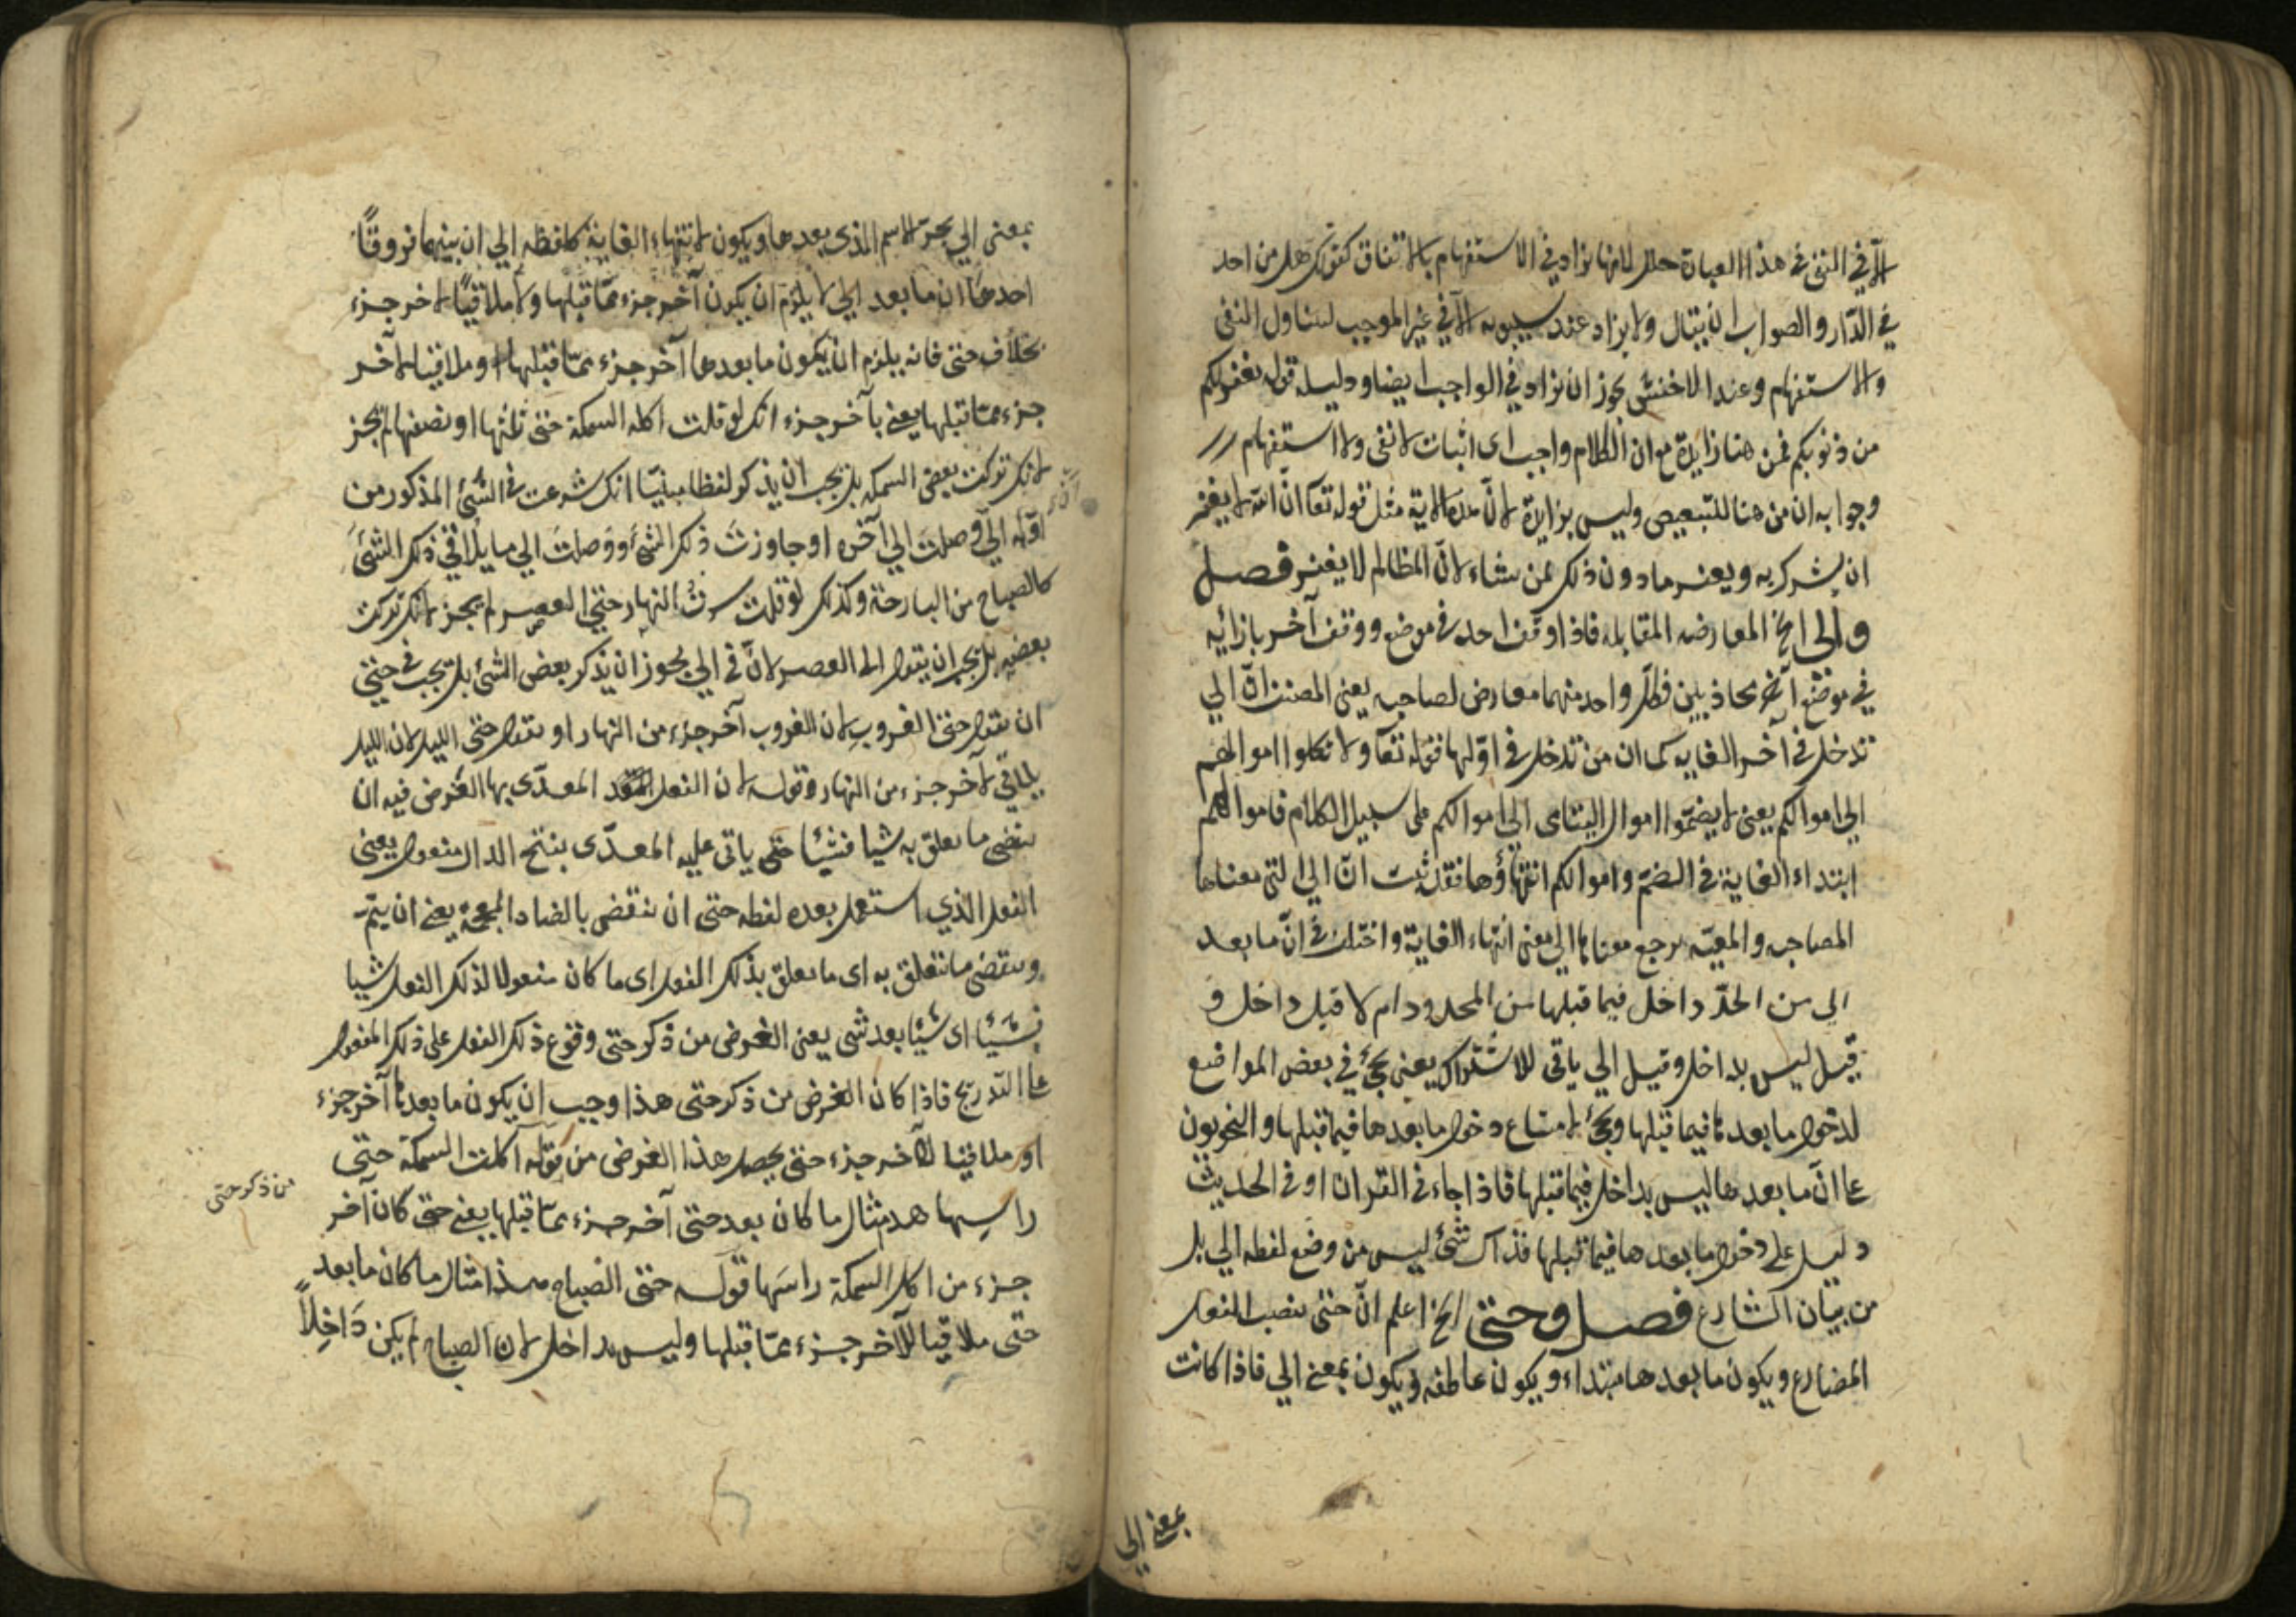 الا في النفي في هذا العبارة خلل لانها تزاد في الاستفهام بالاتفاق كقولك هل من احد
في الدّار والصواب ان يقال ولا يزاد عند سيبويه الا في غير الموجب ليتناول النفي
والاستفهام وعند الاخفش يجوز ان تزاد في الواجب ايضا ودليله قوله يغفر لكم
من ذنوبكم فمن هنا زايدة مع ان الكلام واجب اى اثبات لا نفى ولا استفهام
وجوابه ان من هنا للتبعيض وليس بزايدة لانّ هذه الاية مثل قوله تعا انّ الله لا يغفر
ان يشرك به ويغفر ما دون ذلك لمن يشاء لانّ المظالم لا يغفر فصل
والى الخ المعارضه المقابله فاذا وقف احد في موضع ووقف آخر بازائه
في موضع آخر محاذيين فكلّ واحد منهما معارض لصاحبه يعنى المصنف انّ الي
تدخل في آخر الغايه كما ان من تدخل في اوّلها قوله تعآ ولا تاكلوا اموالهم
الي اموالكم يعنى لا يضمّوا اموال اليتامى الي اموالكم على سبيل الكلام فاموالهم
ابتداء الغاية في الضمّ واموالكم انتهاؤها فقد ثبت انّ الي التي معناها
المصاحبه والمعيّه يرجع معناها الي معنى انتهاء الغاية واختلف في انّ ما بعد
الي من الحدّ داخل فيما قبلها من المحدود ام لا قيل داخل و
قيل ليس بداخل وقيل الي ياتى للاشتراك يعنى يجئ في بعض المواضع
لدخول ما بعدها فيما قبلها ويجئ لامتناع دخول ما بعدها فيما قبلها والنحويون
عا انّ ما بعدها ليس بداخل فيما قبلها فاذا جاء في القران او في الحديث
دليل على دخول ما بعدها فيما قبلها فذاك شئ ليس من وضع لفظه الي بل
من بيان الشارع فصل وحتى الخ اعلم انّ حتى ينصب الفعل
المضارع ويكون ما بعدها مبتداء ويكون عاطفه ويكون بمعنى الي فاذا كانت
بمعنى الى
بمعنى الي يجرّ الاسم الذى بعدها ويكون لانتهاء الغاية كلفظه الي ان بينهما فروقاً
احدها ان ما بعد الي لا يلزم ان يكون آخر جزء ممّا قبلها ولا ملاقيًا لاخر جزء
بخلاف حتى فانه يلزم ان يكون ما بعدها آخر جزء ممّا قبلها او ملاقيا لآخر
جزء ممّا قبلها يعنى بآخر جزء انك لو قلت اكلت السمكة حتى ثلثها او نصفها لم يجز
لانك تركت بعض السمكه بل يجب ان يذكر لفظا مبنيّا انك شرعت في الشئ المذكور من
اوّله الي وصلت الي آخره او جاوزت ذلك الشئ ووصلت الي ما يلاقي ذلك الشئ
كالصباح من البارحة وكذلك لو قلت سرت النهار حتى العصر لم يجز لانك تركت
بعضه بل يجب ان يقول الى العصر لانّ في الي يجوز ان يذكر بعض الشئ بل يجب في حتى
ان يقول حتى الغروب لان الغروب آخر جزء من النهار او يقول حتى الليل لان الليل
يلاقي لآخر جزء من النهار وقوله لان الفعل المعدّى بها الغرض فيه ان
ينقضى ما تعلق به شيا فشيئا حتى ياتى عليه المعدّى بفتح الدال مفعول يعنى
الفعل الذي استعمل بعده لفظه حتى ان ينقضى بالضاد المعجمة يعنى ان يتمّ
وينقضى ما تتعلق به اى ما يعلق بذلك الفعل اى ما كان مفعولا لذلك الفعل شيا
فشيئا اى شيئا بعد شى يعنى الغرض من ذكر حتى وقوع ذلك الفعل على ذلك المفعول
عا التدريج فاذا كان الغرض من ذكر حتى هذا وجب ان يكون ما بعدها آخر جزء
او ملاقيا لآخر جزء حتى يحصل هذا الغرض من قوله اكلت السمكة حتى
من ذكر حتى
راسها هذه مثال ما كان بعد حتى آخر جزء ممّا قبلها يعنى حتى كان آخر
جزء من اكل السمكة راسها قوله حتى الصباح هذا مثال ما كان ما بعد
حتى ملاقيا لآخر جزء ممّا قبلها وليس بداخل لان الصباح لم يكن داخلاً